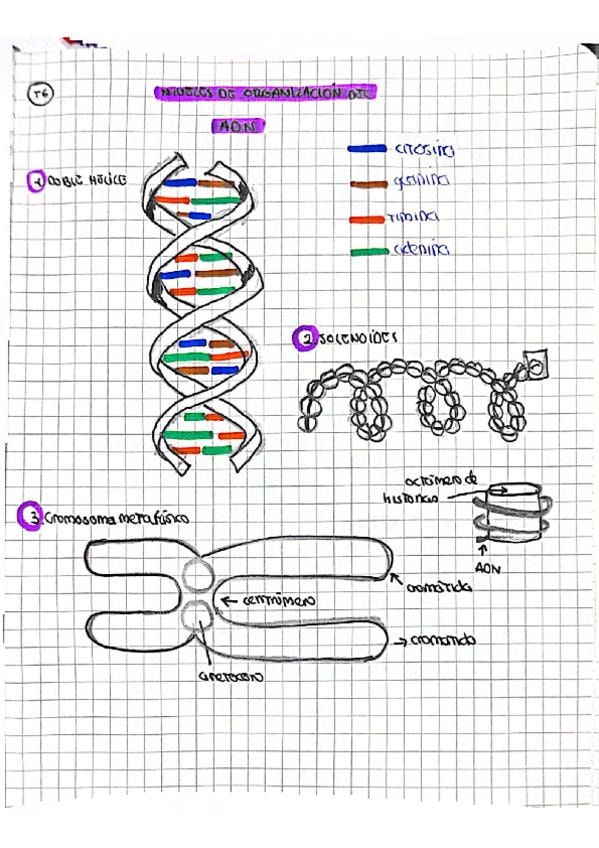 T6
NIVELES DE ORGANIZACIÓN DEL
ADN
1 DOBLE HÉLICE
citosina
guanina
timina
adenina
2 SOLENOIDES
octámero de
histonas
ADN
3. cromosoma metafásico
cromátida
centrómero
cinetocoro